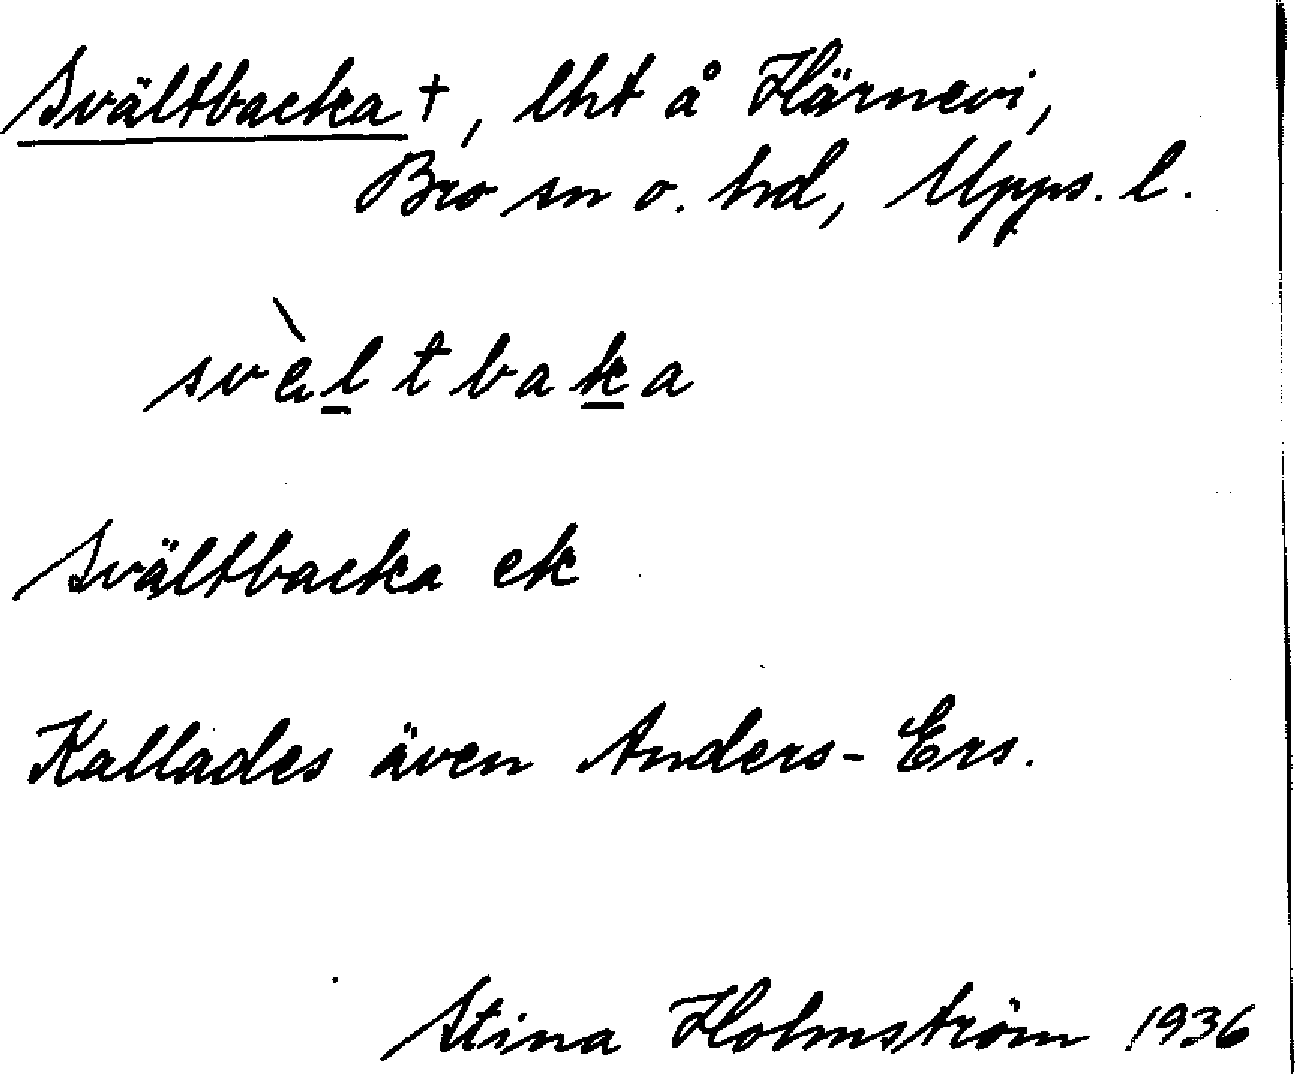 Svältbacka †, lht å Härnevi,
Bro sn o. hd, Upps. l.
svὲl̲tbak̲a
Svältbacka ek
Kallades även Anders-Ers.
Stina Holmström 1936